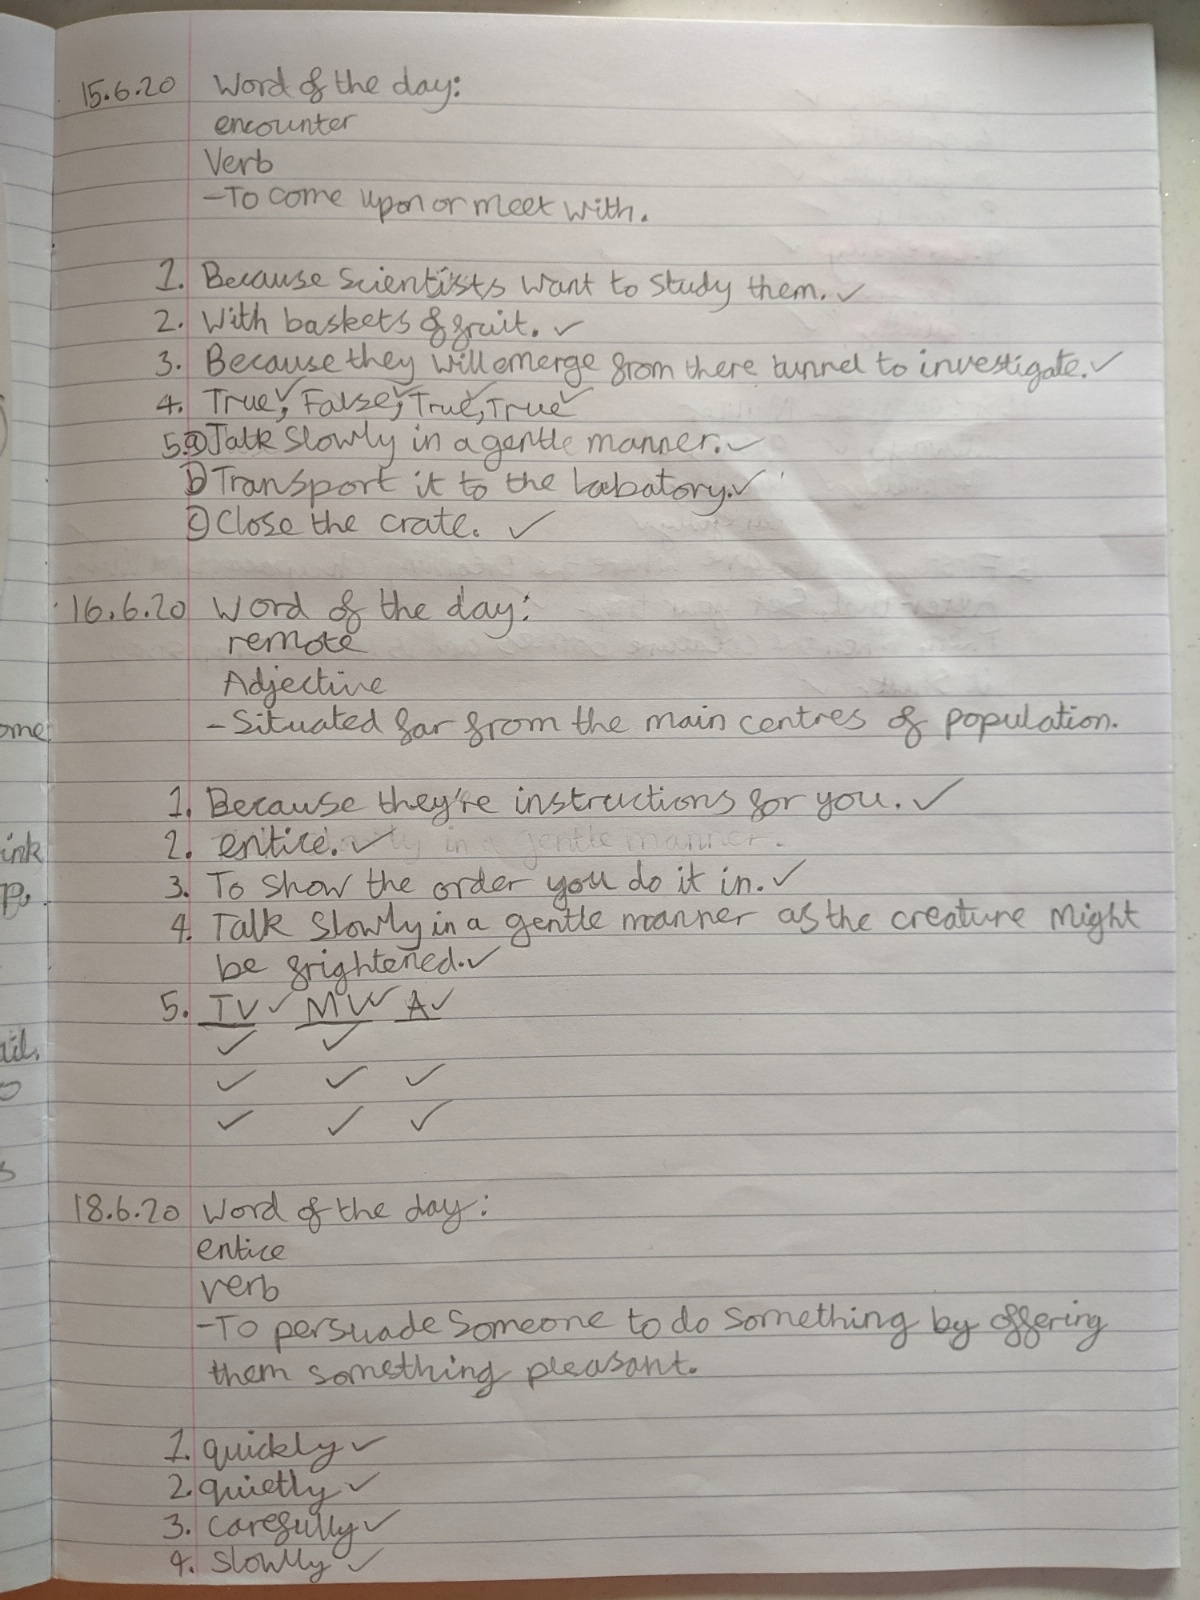 15.6.20 Word of the day:
encounter
Verb
-To come upon or meet with.
1. Because scientists want to study them. ✓
2. With baskets of fruit. ✓
3. Because they will emerge from there tunnel to investigate. ✓
4. True✓, False✓, True✓, True✓
5.a) Talk slowly in a gentle manner. ✓
b) Transport it to the labatory. ✓
c) Close the crate. ✓
16.6.20 Word of the day:
remote
Adjective
- Situated far from the main centres of population.
1. Because they're instructions for you. ✓
2. entice. ✓
3. To show the order you do it in. ✓
4. Talk slowly in a gentle manner as the creature might
be frightened. ✓
5. TV ✓ MV ✓ A ✓
✓ ✓
✓ ✓ ✓
✓ ✓ ✓
18.6.20 Word of the day:
entice
verb
-To persuade someone to do something by offering
them something pleasant.
1. quickly ✓
2. quietly ✓
3. carefully ✓
4. slowly ✓
ome
ink
ail.